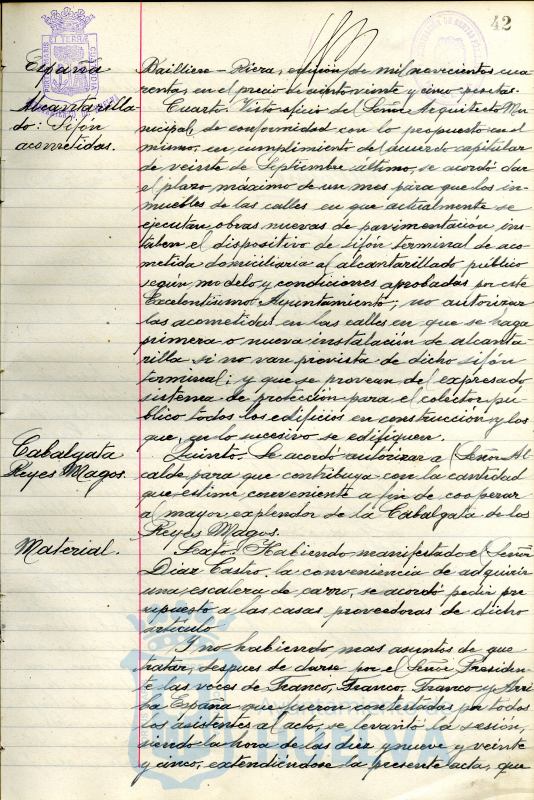 42
España
Alcantarilla
do: Sifón
acometidas.
Bailliere-Riera, edición de mil novecientos cua
renta, en el precio de ciento veinte y cinco pesetas.
Cuarto. Visto oficio del Señor Arquitecto Mu
nicipal, de conformidad con lo propuesto en el
mismo, en cumplimiento del acuerdo capitular
de veinte de Septiembre último, se acordó dar
el plazo máximo de un mes para que los in-
muebles de las calles en que actualmente se
ejecutan obras nuevas de pavimentación ins
talen el dispositivo de sifón terminal de aco
metida domiciliaria al alcantarillado público
según modelo y condiciones aprobadas por este
Excelentísimo Ayuntamiento; no autorizar
las acometidas en las calles en que se haga
primera o nueva instalación de alcanta
rilla si no van prevista de dicho sifón
terminal; y que se provean del expresado
sistema de protección para el colector pú
blico todos los edificios en construcción y los
que, en lo sucesivo se edifiquen.
Cabalgata
Reyes Magos.
Quinto. Se acordó autorizar al Señor Al
calde para que contribuya con la cantidad
que estime conveniente a fin de cooperar
al mayor explendor de la Cabalgata de los
Reyes Magos.
Material.
Sexto. Habiendo manifestado el Señor
Díaz Castro la conveniencia de adquirir
una escalera de carro, se acordó pedir pre
supuesto a las casas proveedoras de dicho
artículo
Y no habiendo mas asuntos de que
tratar, despues de darse por el Señor Presiden
te las voces de Franco, Franco, Franco y Arri
ba España que fueron contestadas por todos
los asistentes al acto, se levantó la sesión,
siendo la hora de las diez y nueve y veinte
y cinco, extendiéndose la presente acta, que